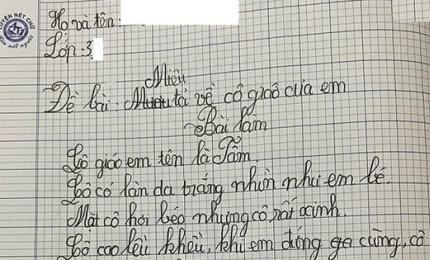 Họ và tên:
Lớp: 3
Miêu
Đề bài: tả về cô giáo của em
Bài làm
Cô giáo em tên là Tâm.
Cô có làn da trắng nhìn như em bé.
Mặt cô hơi béo nhưng cô rất xinh.
Cô cao lêu khêu, khi em đứng gần cùng, cô